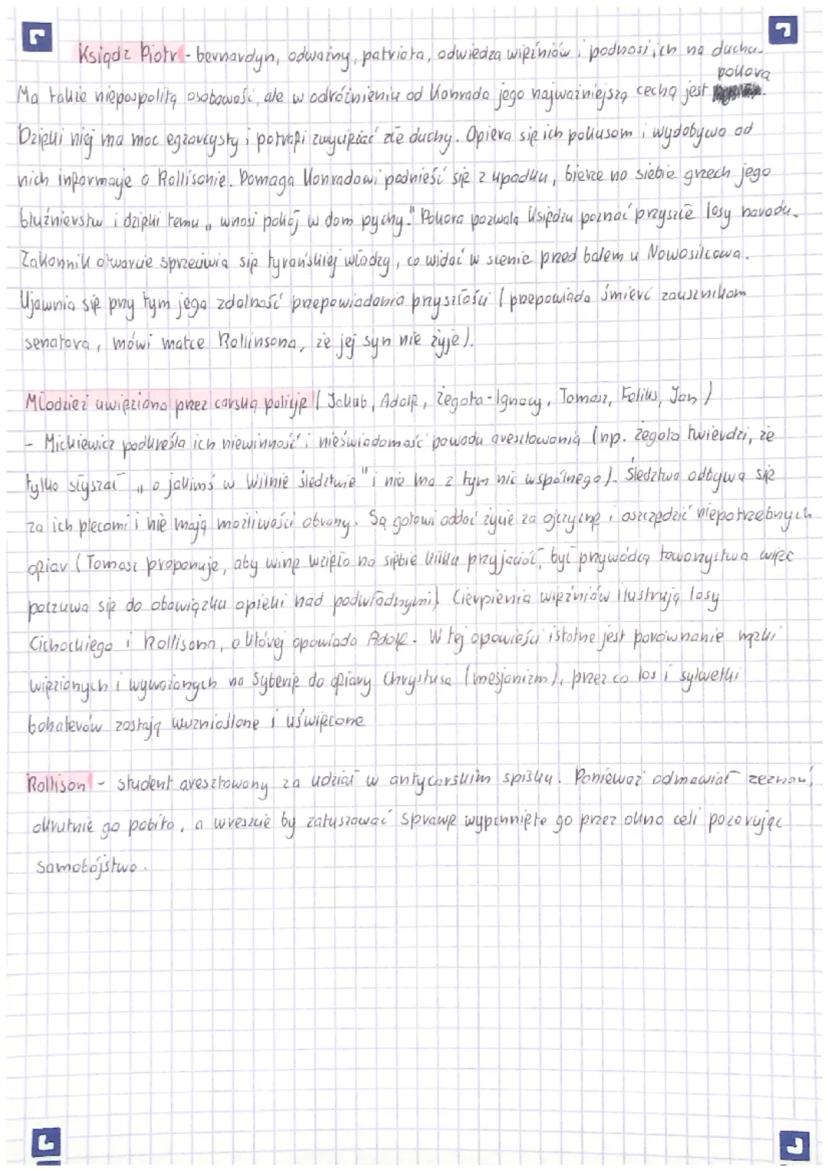 Ksiądz Piotr - bernardyn, odważny, patriota, odwiedza więźniów i podnosi ich na duchu.
pokora
Ma także niepospolitą osobowość, ale w odróżnieniu od Konrada jego najważniejszą cechą jest
Dzięki niej ma moc egzorcysty i potrafi zwyciężać złe duchy. Opiera się ich pokusom i wydobywa od
nich informacje o Rollisonie. Pomaga Konradowi podnieść się z upadku, bierze na siebie grzech jego
bluźnierstw i dzięki temu „wnosi pokój w dom pychy." Pokora pozwala księdzu poznać przyszłe losy narodu.
Zakonnik otwarcie sprzeciwia się tyrańskiej władzy, co widać w scenie przed balem u Nowosilcowa.
Ujawnia się przy tym jego zdolność przepowiadania przyszłości (przepowiada śmierć zausznikom
senatora, mówi matce Rollinsona, że jej syn nie żyje).
Młodzież uwięziona przez carską policję (Jakub, Adolf, Żegota-Ignacy, Tomasz, Feliks, Jan)
- Mickiewicz podkreśla ich niewinność i nieświadomość powodu aresztowania (np. Żegota twierdzi, że
tylko słyszał „o jakimś w Wilnie śledztwie" i nie ma z tym nic wspólnego). Śledztwo odbywa się
za ich plecami i nie mają możliwości obrony. Są gotowi oddać życie za ojczyznę i oszczędzić niepotrzebnych
ofiar (Tomasz proponuje, aby winę wzięło na siebie kilku przyjaciół, był przywódcą towarzystwa więc
poczuwa się do obowiązku opieki nad podwładnymi). Cierpienia więźniów ilustrują losy
Cichockiego i Rollisona, o której opowiada Adolf. W tej opowieści istotne jest porównanie męki
więzionych i wywożonych na Syberię do ofiary Chrystusa (mesjanizm), przez co los i sylwetki
bohaterów zostają wuznioślone i uświęcone
Rollison - student aresztowany za udział w antycarskim spisku. Ponieważ odmawiał zeznań,
okrutnie go pobito, a wreszcie by zatuszować sprawę wypchnięto go przez okno celi pozorując
samobójstwo.